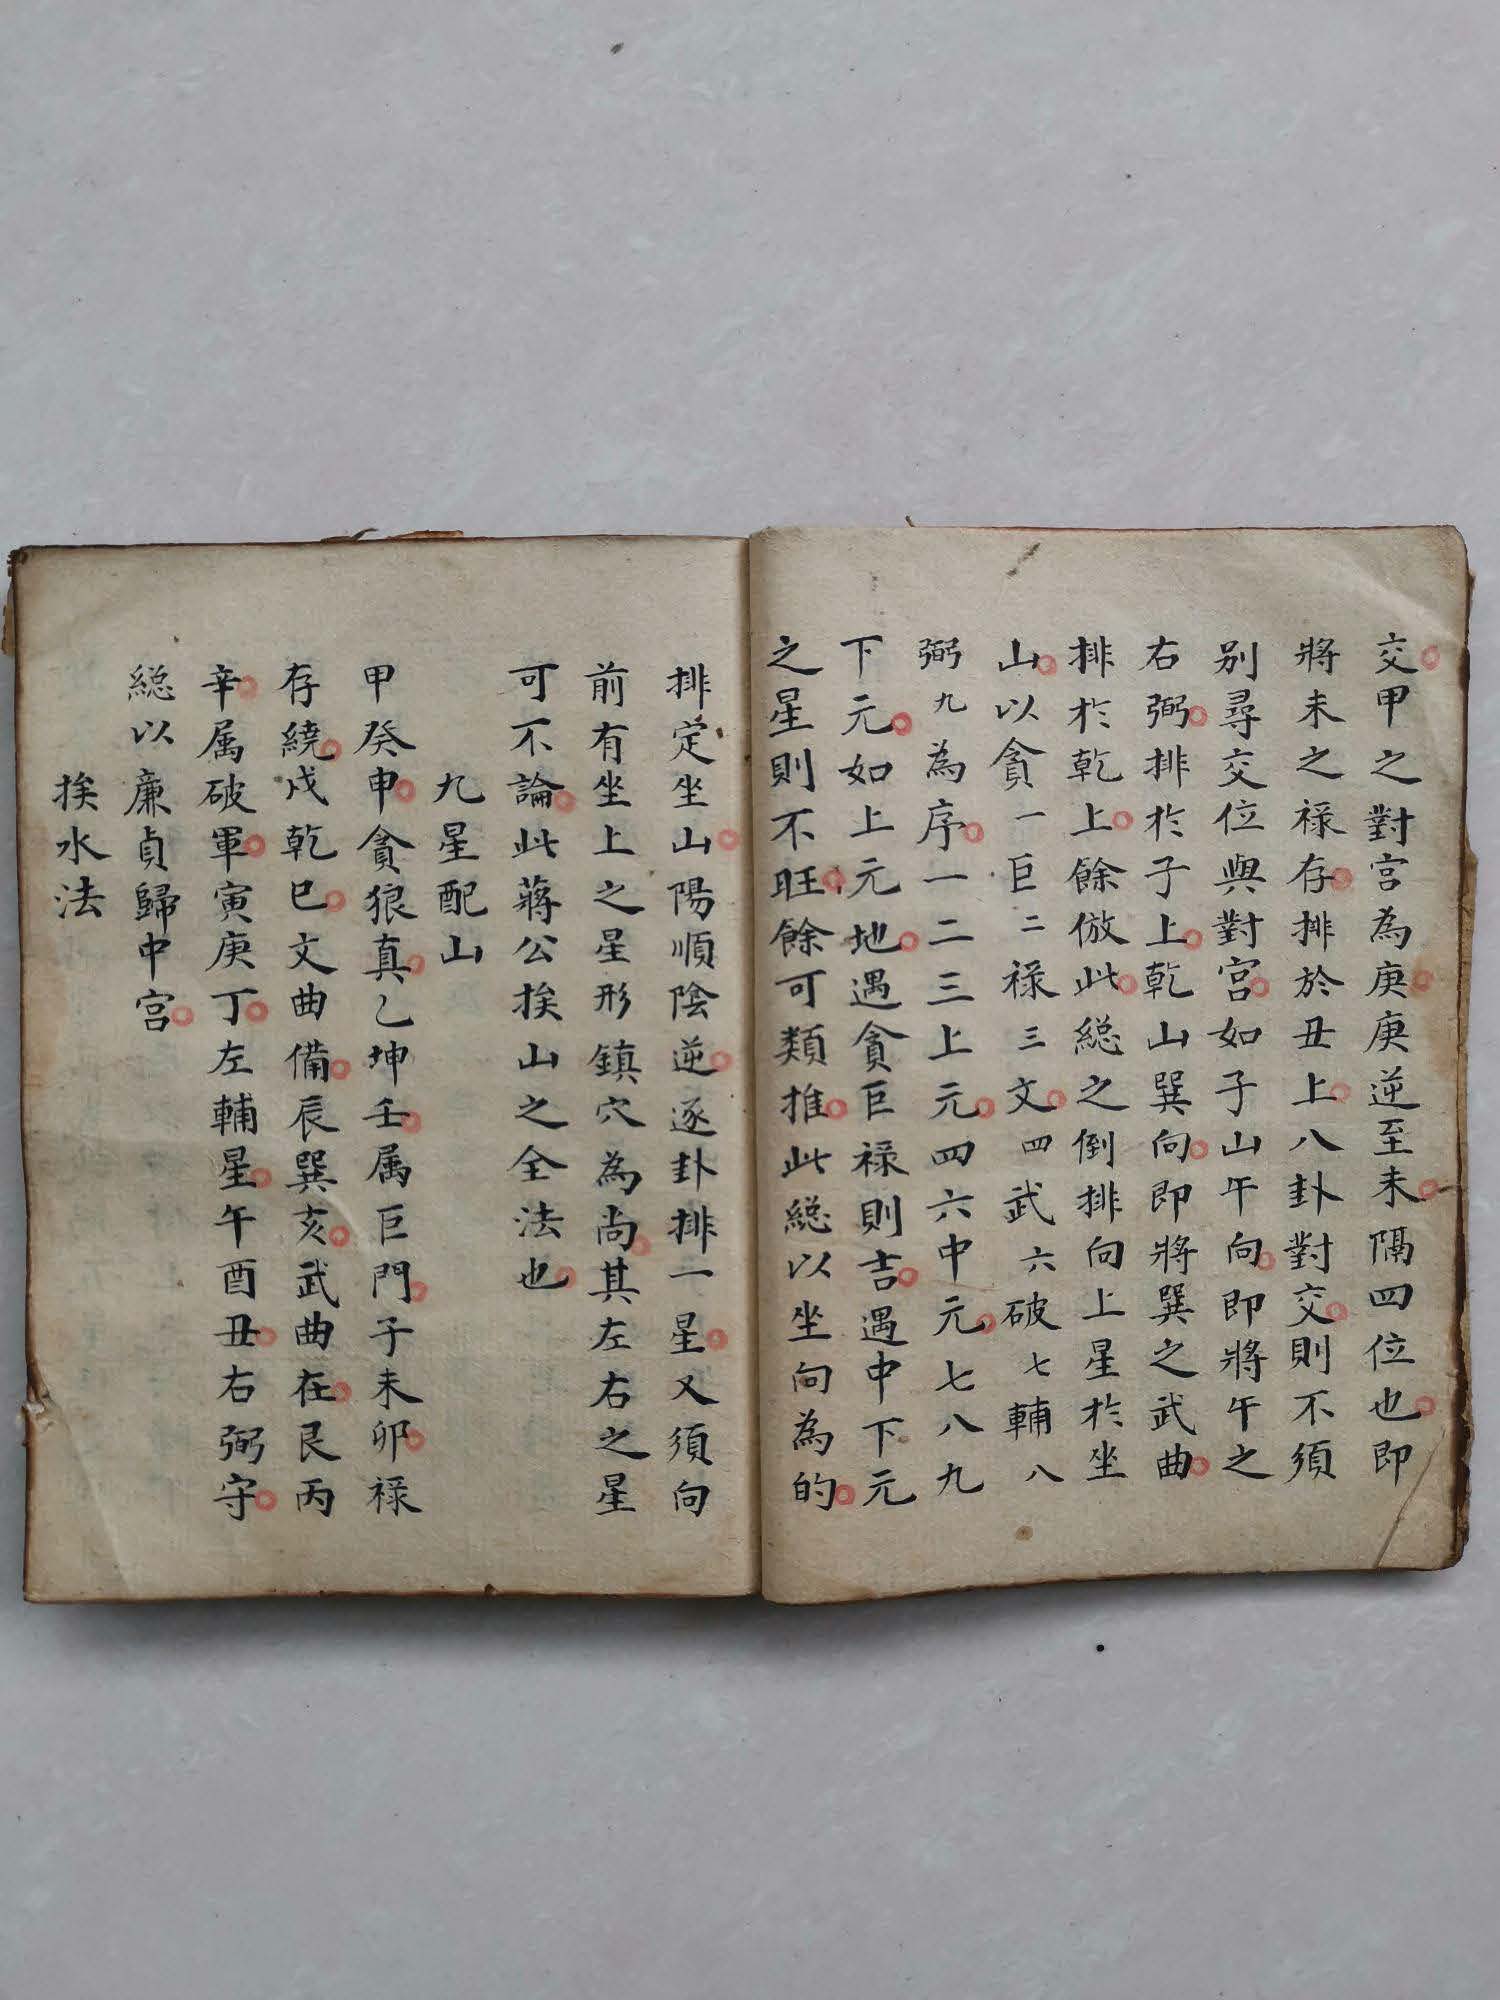 交甲之對宮為庚庚逆至未隔四位也即
將未之祿存排於丑上八卦對交則不須
別尋交位與對宮如子山午向即將午之
右弼排於子上乾山巽向即將巽之武曲
排於乾上餘倣此總之倒排向上星於坐
山以貪一巨二祿三文四武六破七輔八
弼九為序一二三上元四六中元七八九
下元如上元地遇貪巨祿則吉遇中下元
之星則不旺餘可類推此總以坐向為的
排定坐山陽順陰逆逐卦排一星又須向
前有坐上之星形鎮穴為尚其左右之星
可不論此蔣公挨山之全法也
九星配山
甲癸申貪狼真乙坤壬属巨門子未卯祿
存繞戌乾巳文曲備辰巽亥武曲在艮丙
辛属破軍寅庚丁左輔星午酉丑右弼守
總以廉貞歸中宮
挨水法